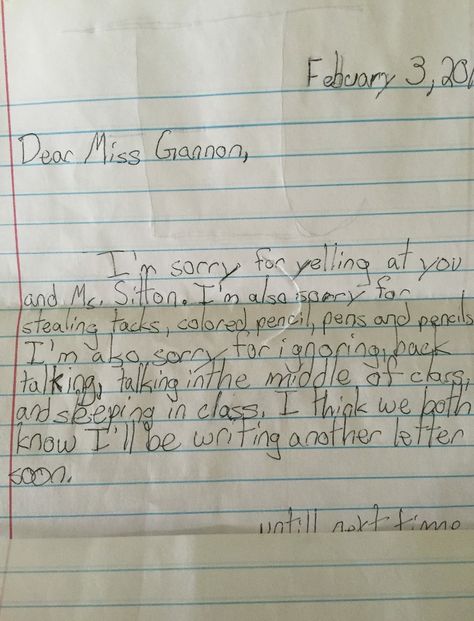 Febuary 3, 20
Dear Miss Gannon,
I'm sorry for yelling at you
and Ms. Sitton. I'm also sorry for
stealing tacks, colored pencil, pens and pencils
I'm also sorry for ignoring, back
talking, talking in the middle of class,
and sleeping in class. I think we both
know I'll be writing another letter
soon.
untill next time